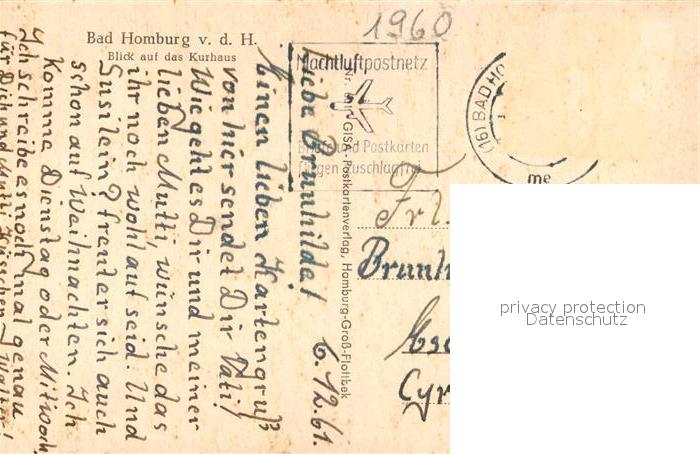 1960
Bad Homburg v. d. H.
Blick auf das Kurhaus
Nachtluftpostnetz
Briefe und Postkarten
fliegen zuschlagfrei
(16) BAD HO
me
GISA-Postkartenverlag, Hamburg-Groß-Flottbek
6.12.61.
Liebe Brunhilde!
Einen lieben Kartengruß
von hier sendet Dir Vati!
Wie geht es Dir und meiner
lieben Mutti, wünsche das
ihr noch wohl auf seid. Und
Susilein? freut er sich auch
schon auf Weihnachten. Ich
Komme Dienstag oder Mittwoch,
Ich schreibe es noch mal genau
für Dich und Mutti Küsschen
Frl.
Brunh
Esc
Cyr
privacy protection
Datenschutz